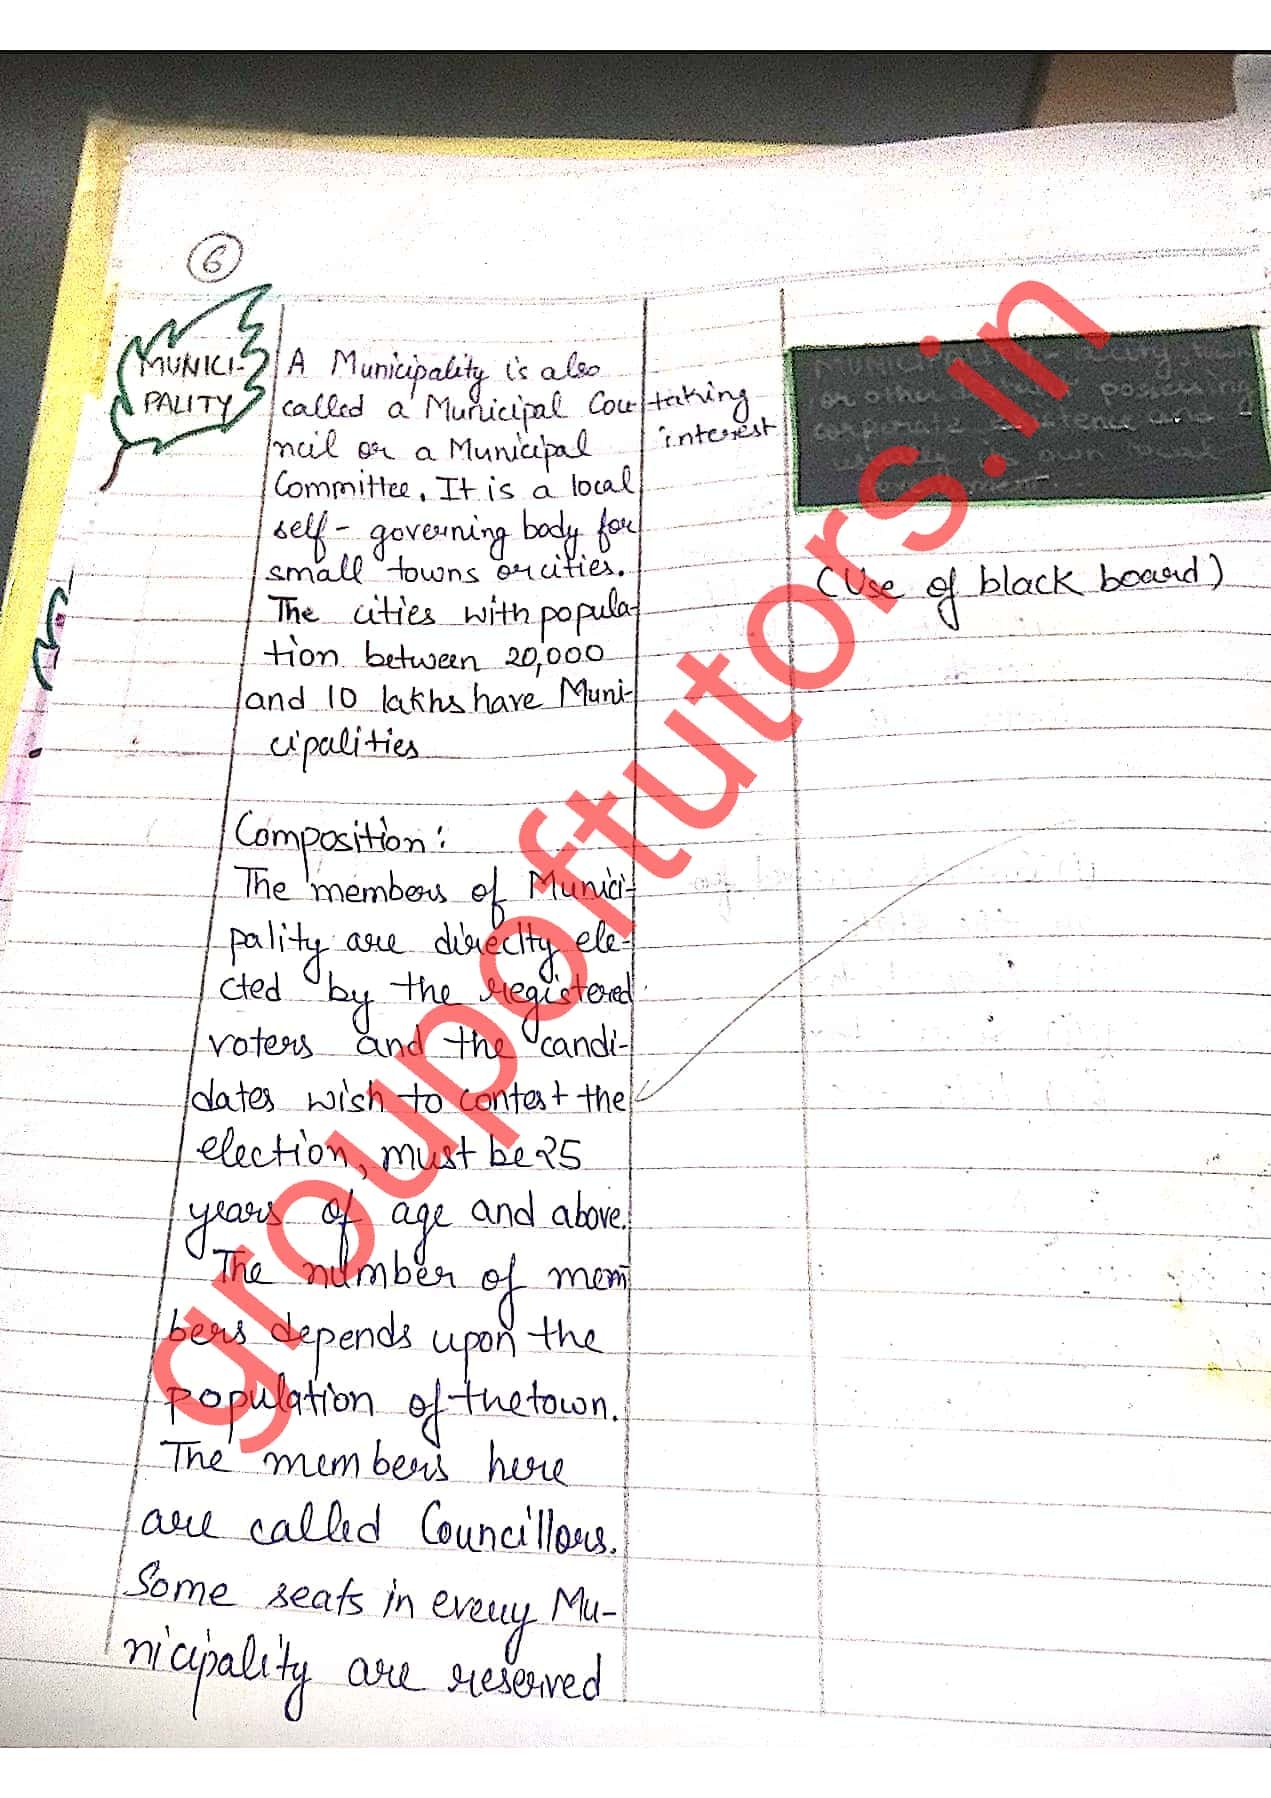 6
MUNICI-
PALITY
A Municipality is also
called a Municipal Cou-
ncil or a Municipal
Committee. It is a local
self-governing body for
small towns or cities.
The cities with popula-
tion between 20,000
and 10 lakhs have Muni-
cipalities
Composition:
The members of Munici-
pality are direclty ele-
cted by the registered
voters and the candi-
dates wish to contest the
election, must be 25
years of age and above.
The number of mem
bers depends upon the
population of the town.
The members here
are called Councillors.
Some seats in every Mu-
nicipality are reserved
taking
interest
MUNICIPALITY - a city, town
or other possessing
corporate
own
(Use of black board)
groupoftutors.in